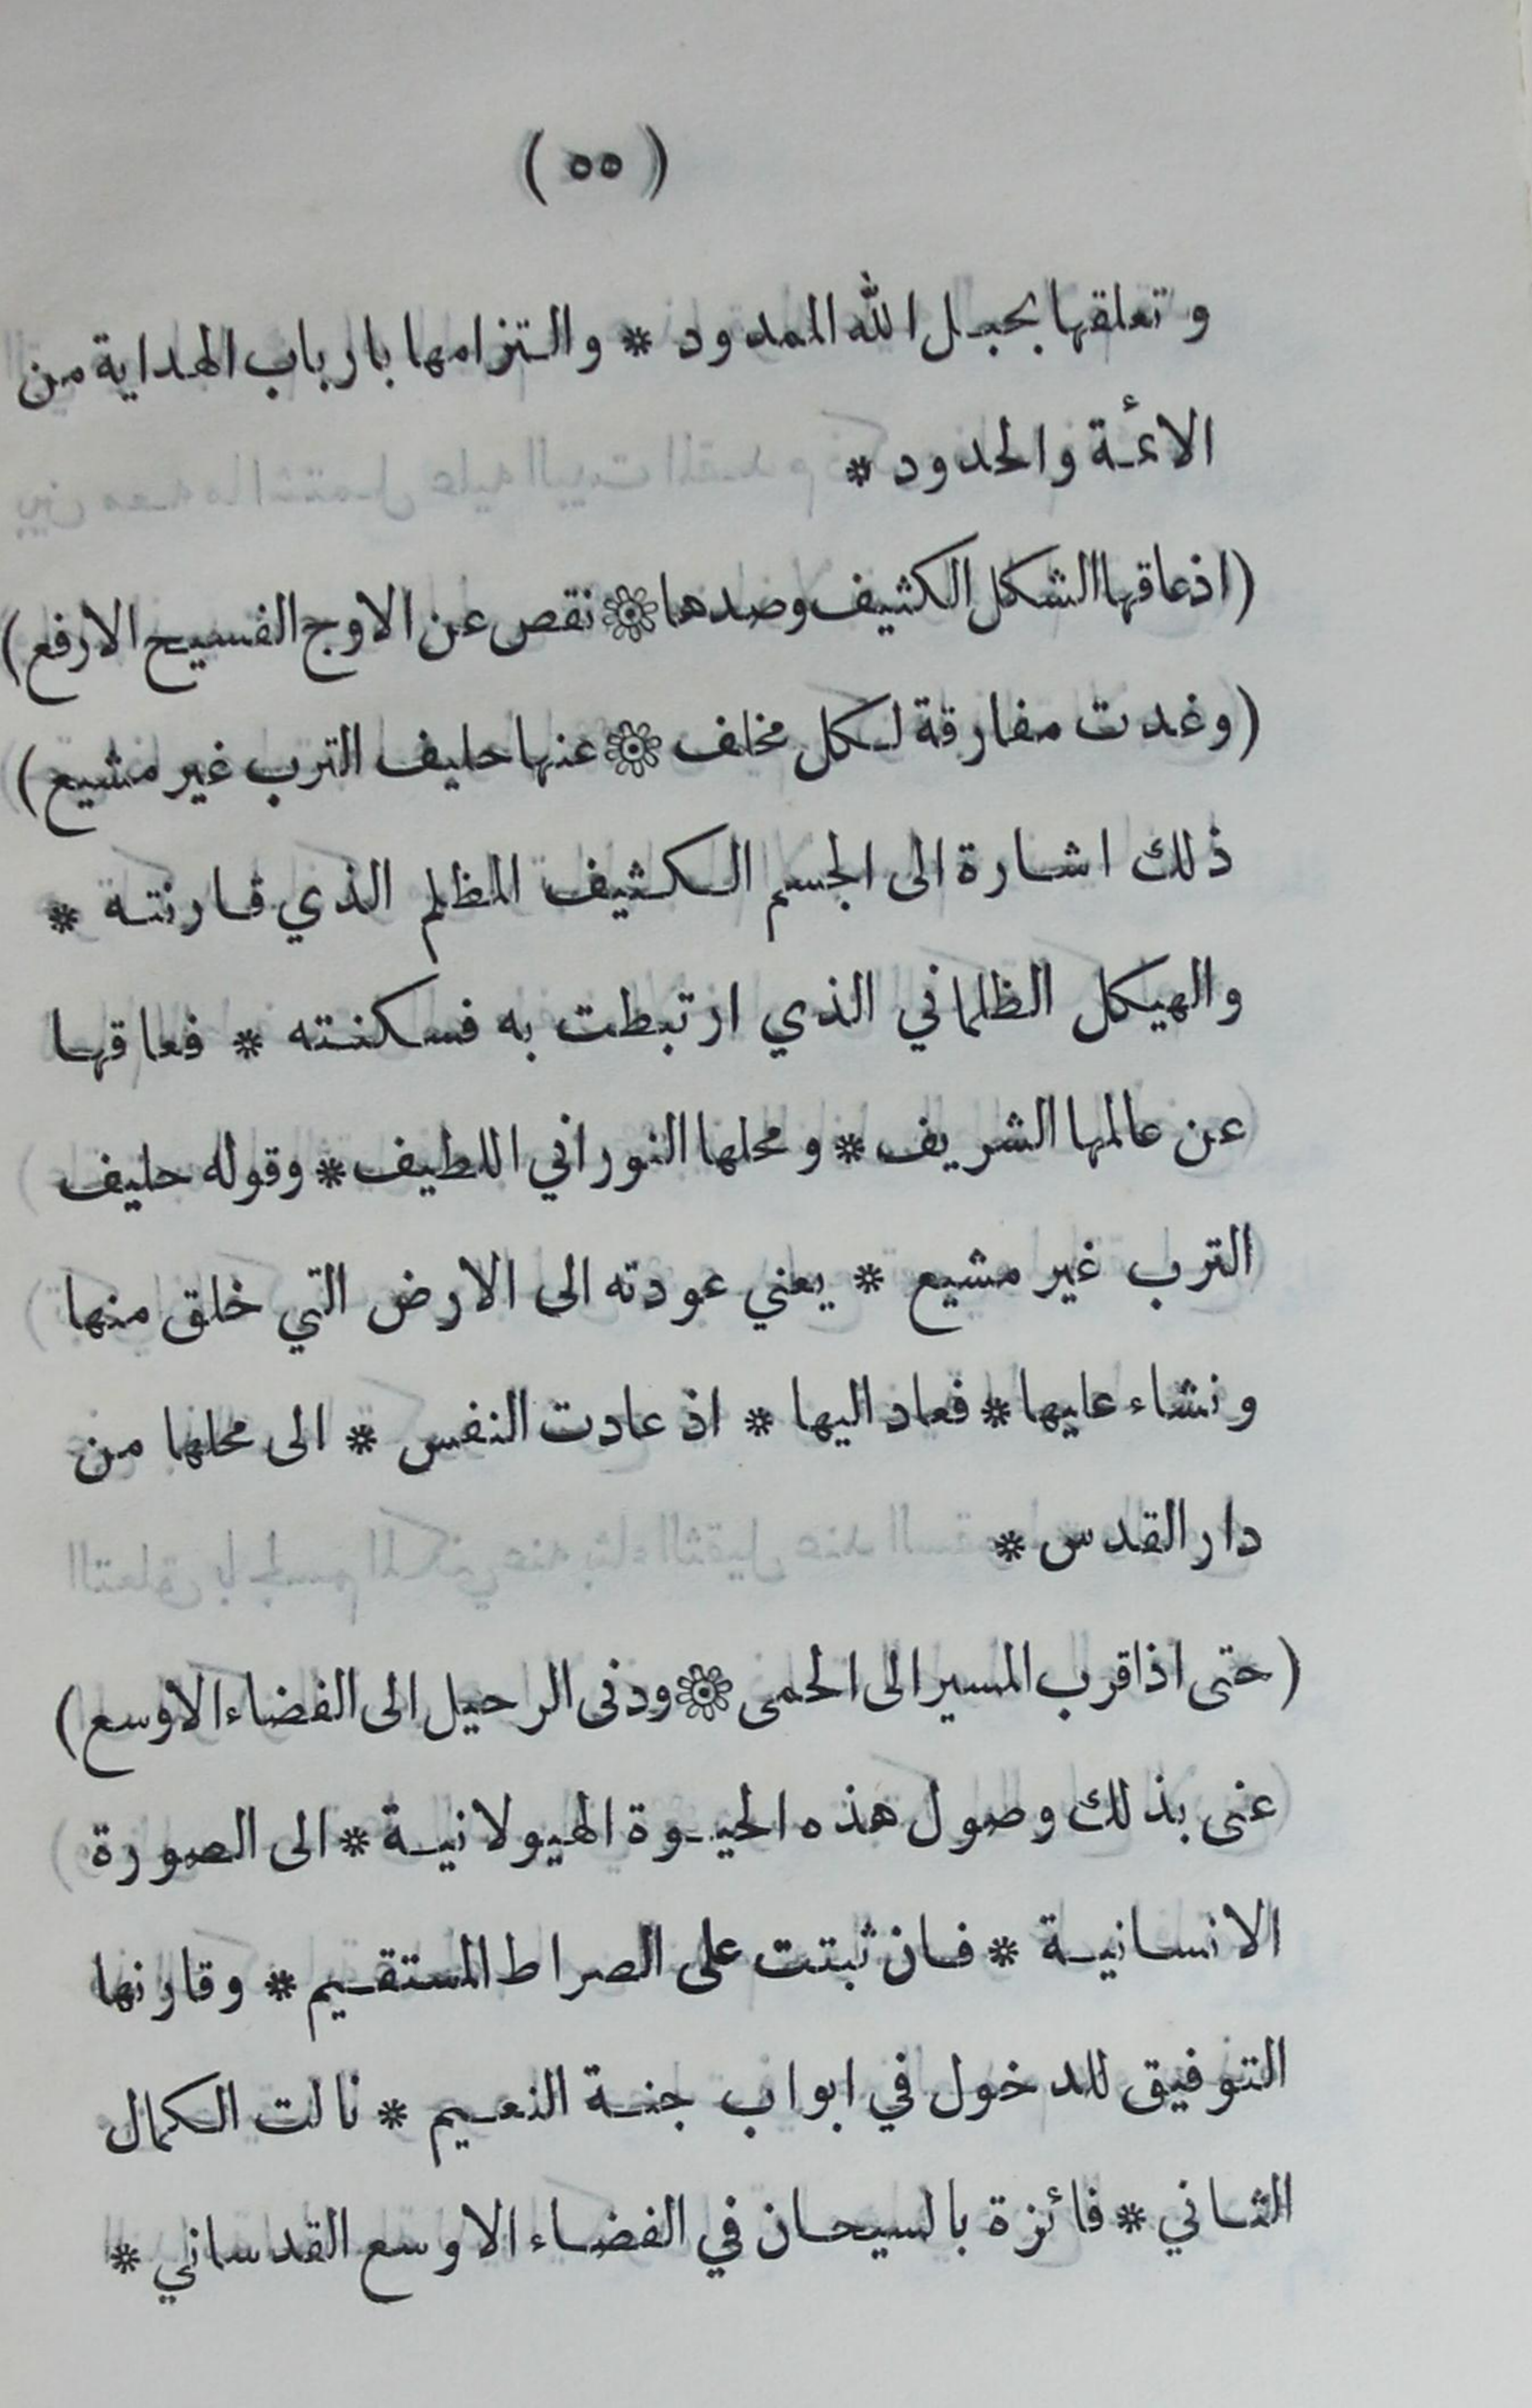 (٥٥)
وتعلقها بحبل الله الممدود * والتزامها بارباب الهداية من
الائمة والحدود *
(اذعاقها الشكل الكثيف وصدها ۞ نقص عن الاوج الفسيح الارفع)
(وغدت مفارقة لكل مخلف ۞ عنها حليف الترب غير مشيع)
ذلك اشارة الى الجسم الكثيف المظلم الذي قارنته *
والهيكل الظلماني الذي ارتبطت به فسكنته * فعاقها
عن عالمها الشريف * ومحلها النوراني اللطيف * وقوله حليف
الترب غير مشيع * يعني عودته الى الارض التي خلق منها
ونشاء عليها * فعاد اليها * اذ عادت النفس * الى محلها من
دار القدس *
(حتى اذا قرب المسير الى الحمى ۞ ودنى الرحيل الى الفضاء الاوسع)
عنى بذلك وصول هذه الحيوة الهيولانية * الى الصورة
الانسانية * فان ثبتت على الصراط المستقيم * وقارنها
التوفيق للدخول في ابواب جنة النعيم * نالت الكمال
الثاني * فائزة بالسيحان في الفضاء الاوسع القدساني *